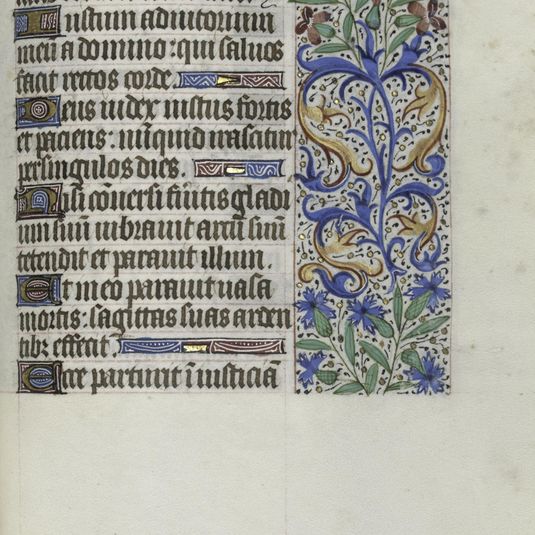 Iustum adiutorium
meū a domino: qui saluos
facit rectos corde.
Deus iudex iustus fortis
et paciens: nūquid irascitur
per singulos dies.
Nisi cōuersi fuitis gladi
um suū uibrauit arcū suū
tetendit et parauit illum.
Et in eo parauit uasa
mortis: sagittas suas arden
tibꝫ effecit.
Ecce parturit īiusticiā